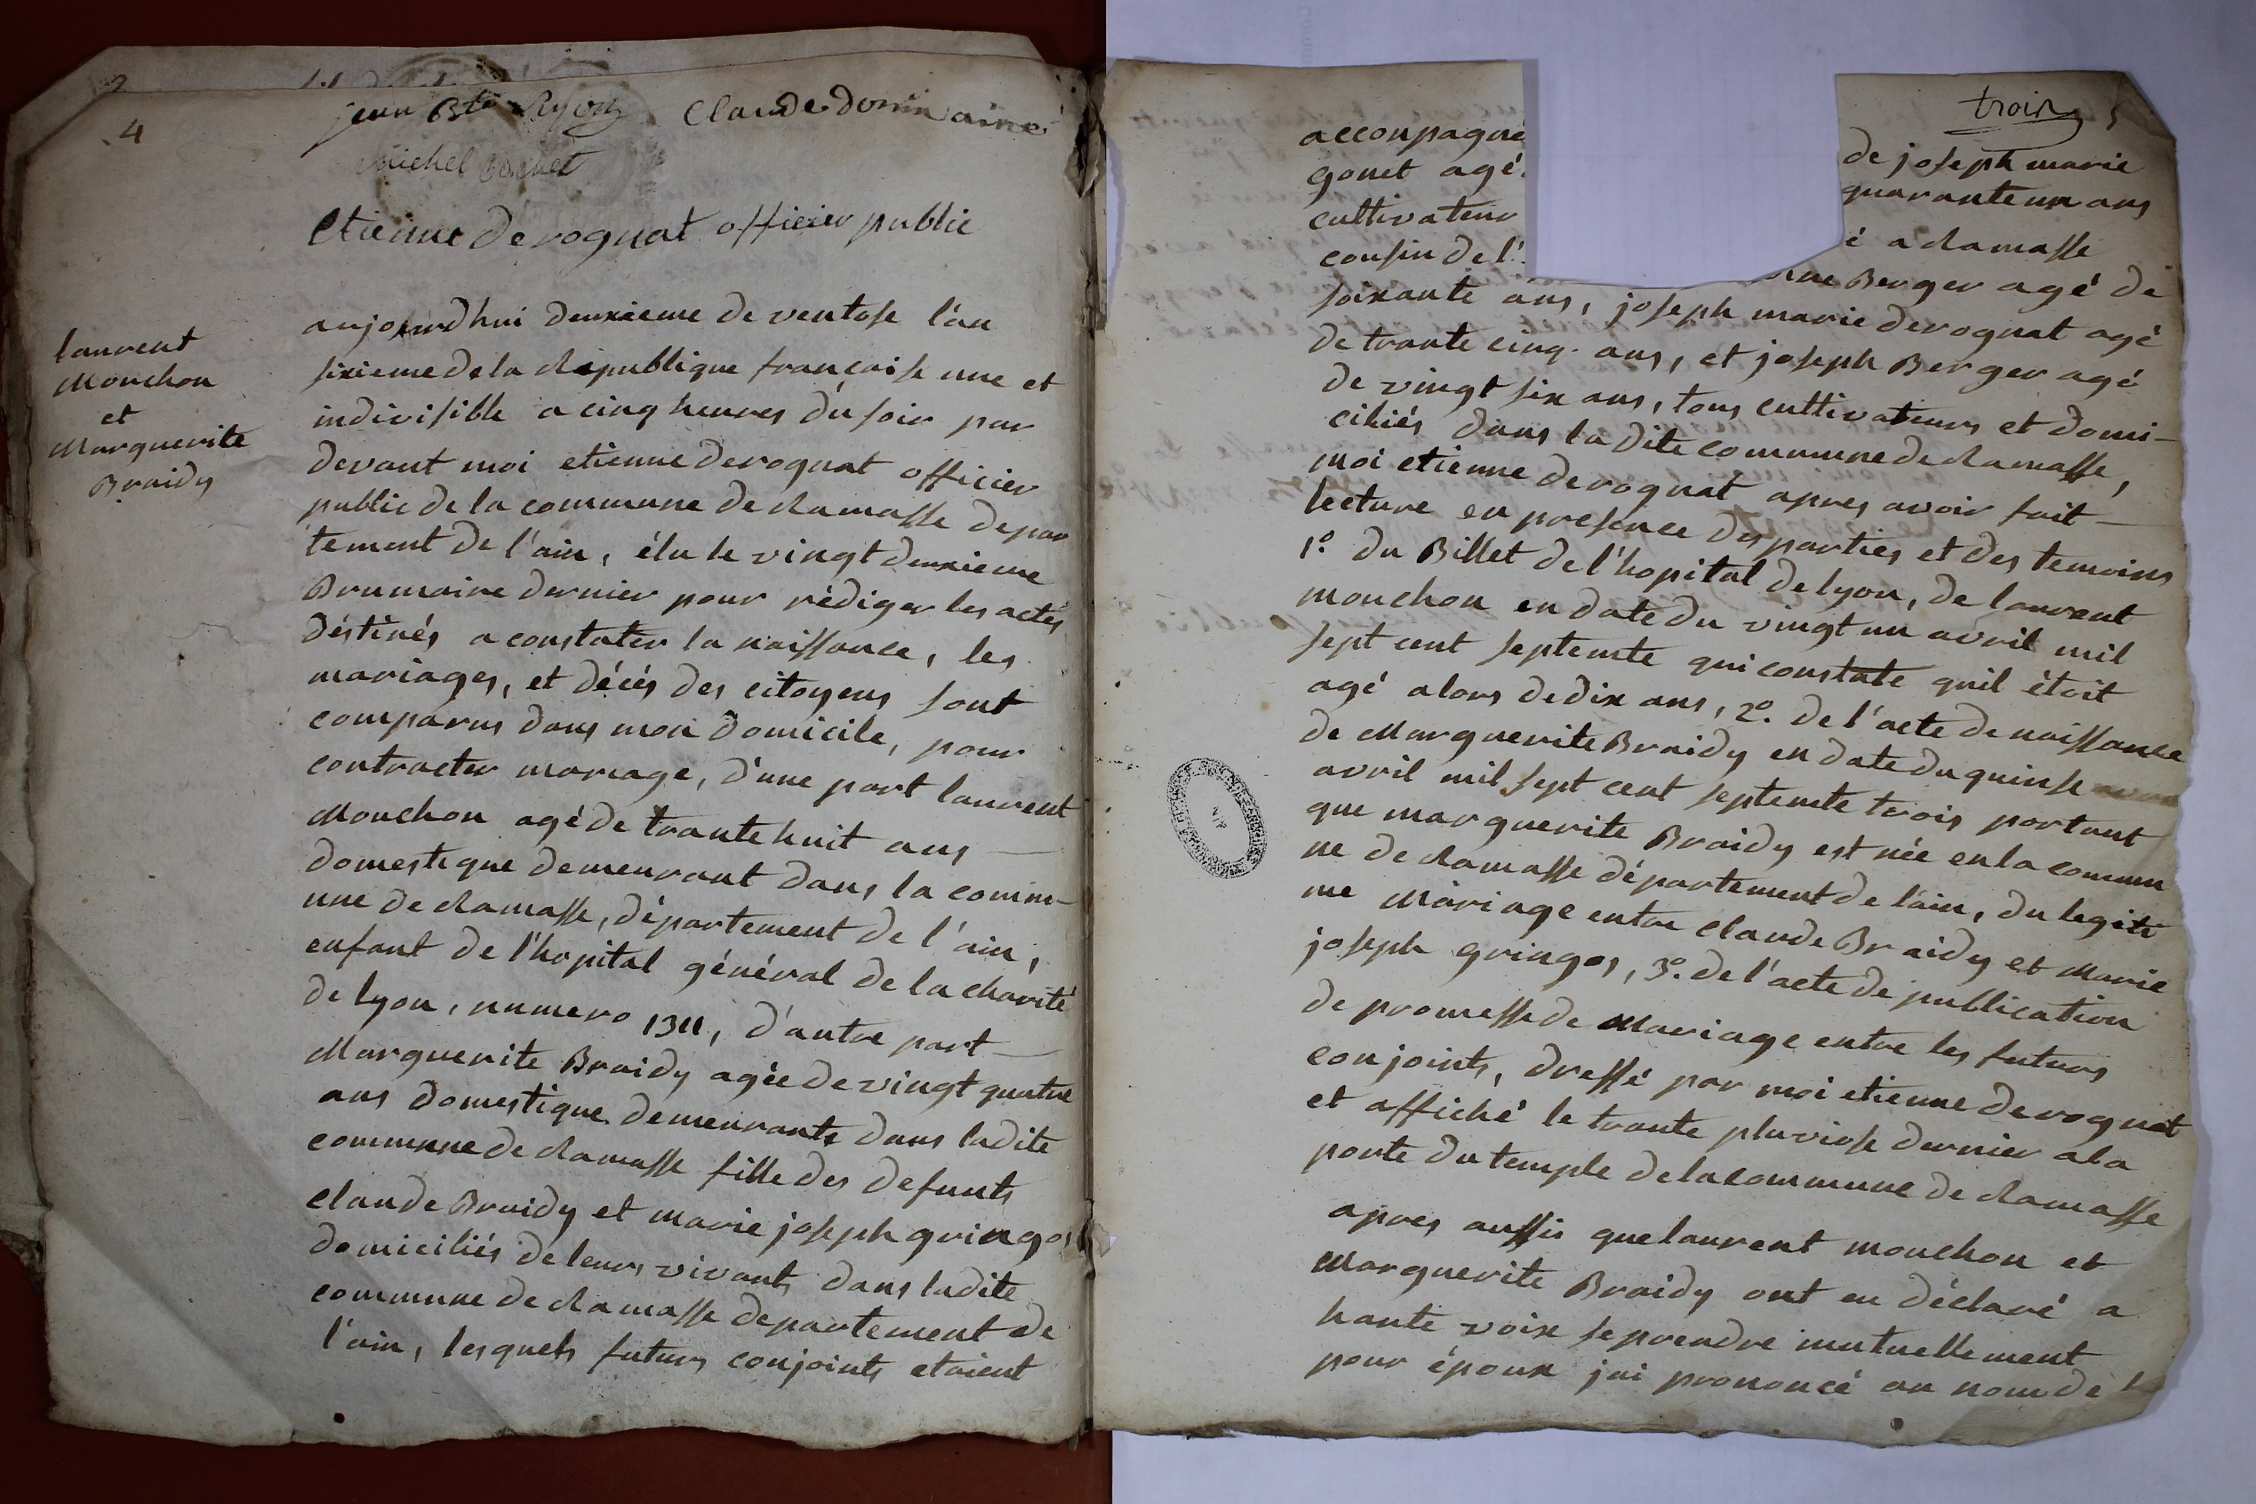 4
jean Bte
Claude donin ainé
Michel
Etienne derognat officier public
laurent
Mouchon
et
Marguerite
Braidy
aujourdhui deuxieme de ventose l'an
sixieme de la république française une et
indivisible a cinq heures du soir par
devant moi etienne derognat officier
public de la commune de ramasse depar
tement de l'ain, élu le vingt deuxieme
Brumaire dernier pour rédiger les actes
déstinés a constater la naissance, les
mariages, et décés des citoyens sont
comparus dans mon domicile, pour
contracter mariage, d'une part laurent
Mouchon agé de trante huit ans —
domestique demeurant dans la commu-
ne de ramasse, département de l'ain,
enfant de l'hopital général de la charité
de lyon, numero 1311, d'autre part —
Marguerite Braidy agée de vingt quatre
ans domestique demeurante dans ladite
commune de ramasse fille des defunts
claude Braidy et marie joseph gringos
domiciliés de leurs vivants dans ladite
commune de ramasse departement de
l'ain, lesquels futurs conjoints etoient
trois 5
accompagné de joseph marie
gonet agé quarante un ans
cultivateur é a ramasse
cousin de l' Berger agé de
soixante ans, joseph marie derognat agé
de trante cinq ans, et joseph Berger agé
de vingt six ans, tous cultivateurs et domi-
ciliés dans la dite commune de ramasse,
moi etienne derognat apres avoir fait —
lecture en presence des parties et des temoins
1° du Billet de l'hopital de lyon, de laurent
mouchon en date du vingt un avril mil
sept cent septente qui constate quil étoit
agé alors de dix ans, 2° de l'acte de naissance
de Marguerite Braidy en date du quinse
avril mil sept cent septente trois portant
que marguerite Braidy est née en la commu
ne de ramasse département de l'ain, du legiti
me Mariage entre claude Braidy et Marie
joseph gringos, 3° de l'acte de publication
de promesse de Mariage entre les futurs
conjoints, dressé par moi etienne derognat
et affiché le trante pluviose dernier a la
porte du temple de la commune de ramasse
apres aussi que laurent mouchon et
Marguerite Braidy ont eu déclaré a
haute voix se prendre mutuellement
pour époux jai prononcé au nom de l